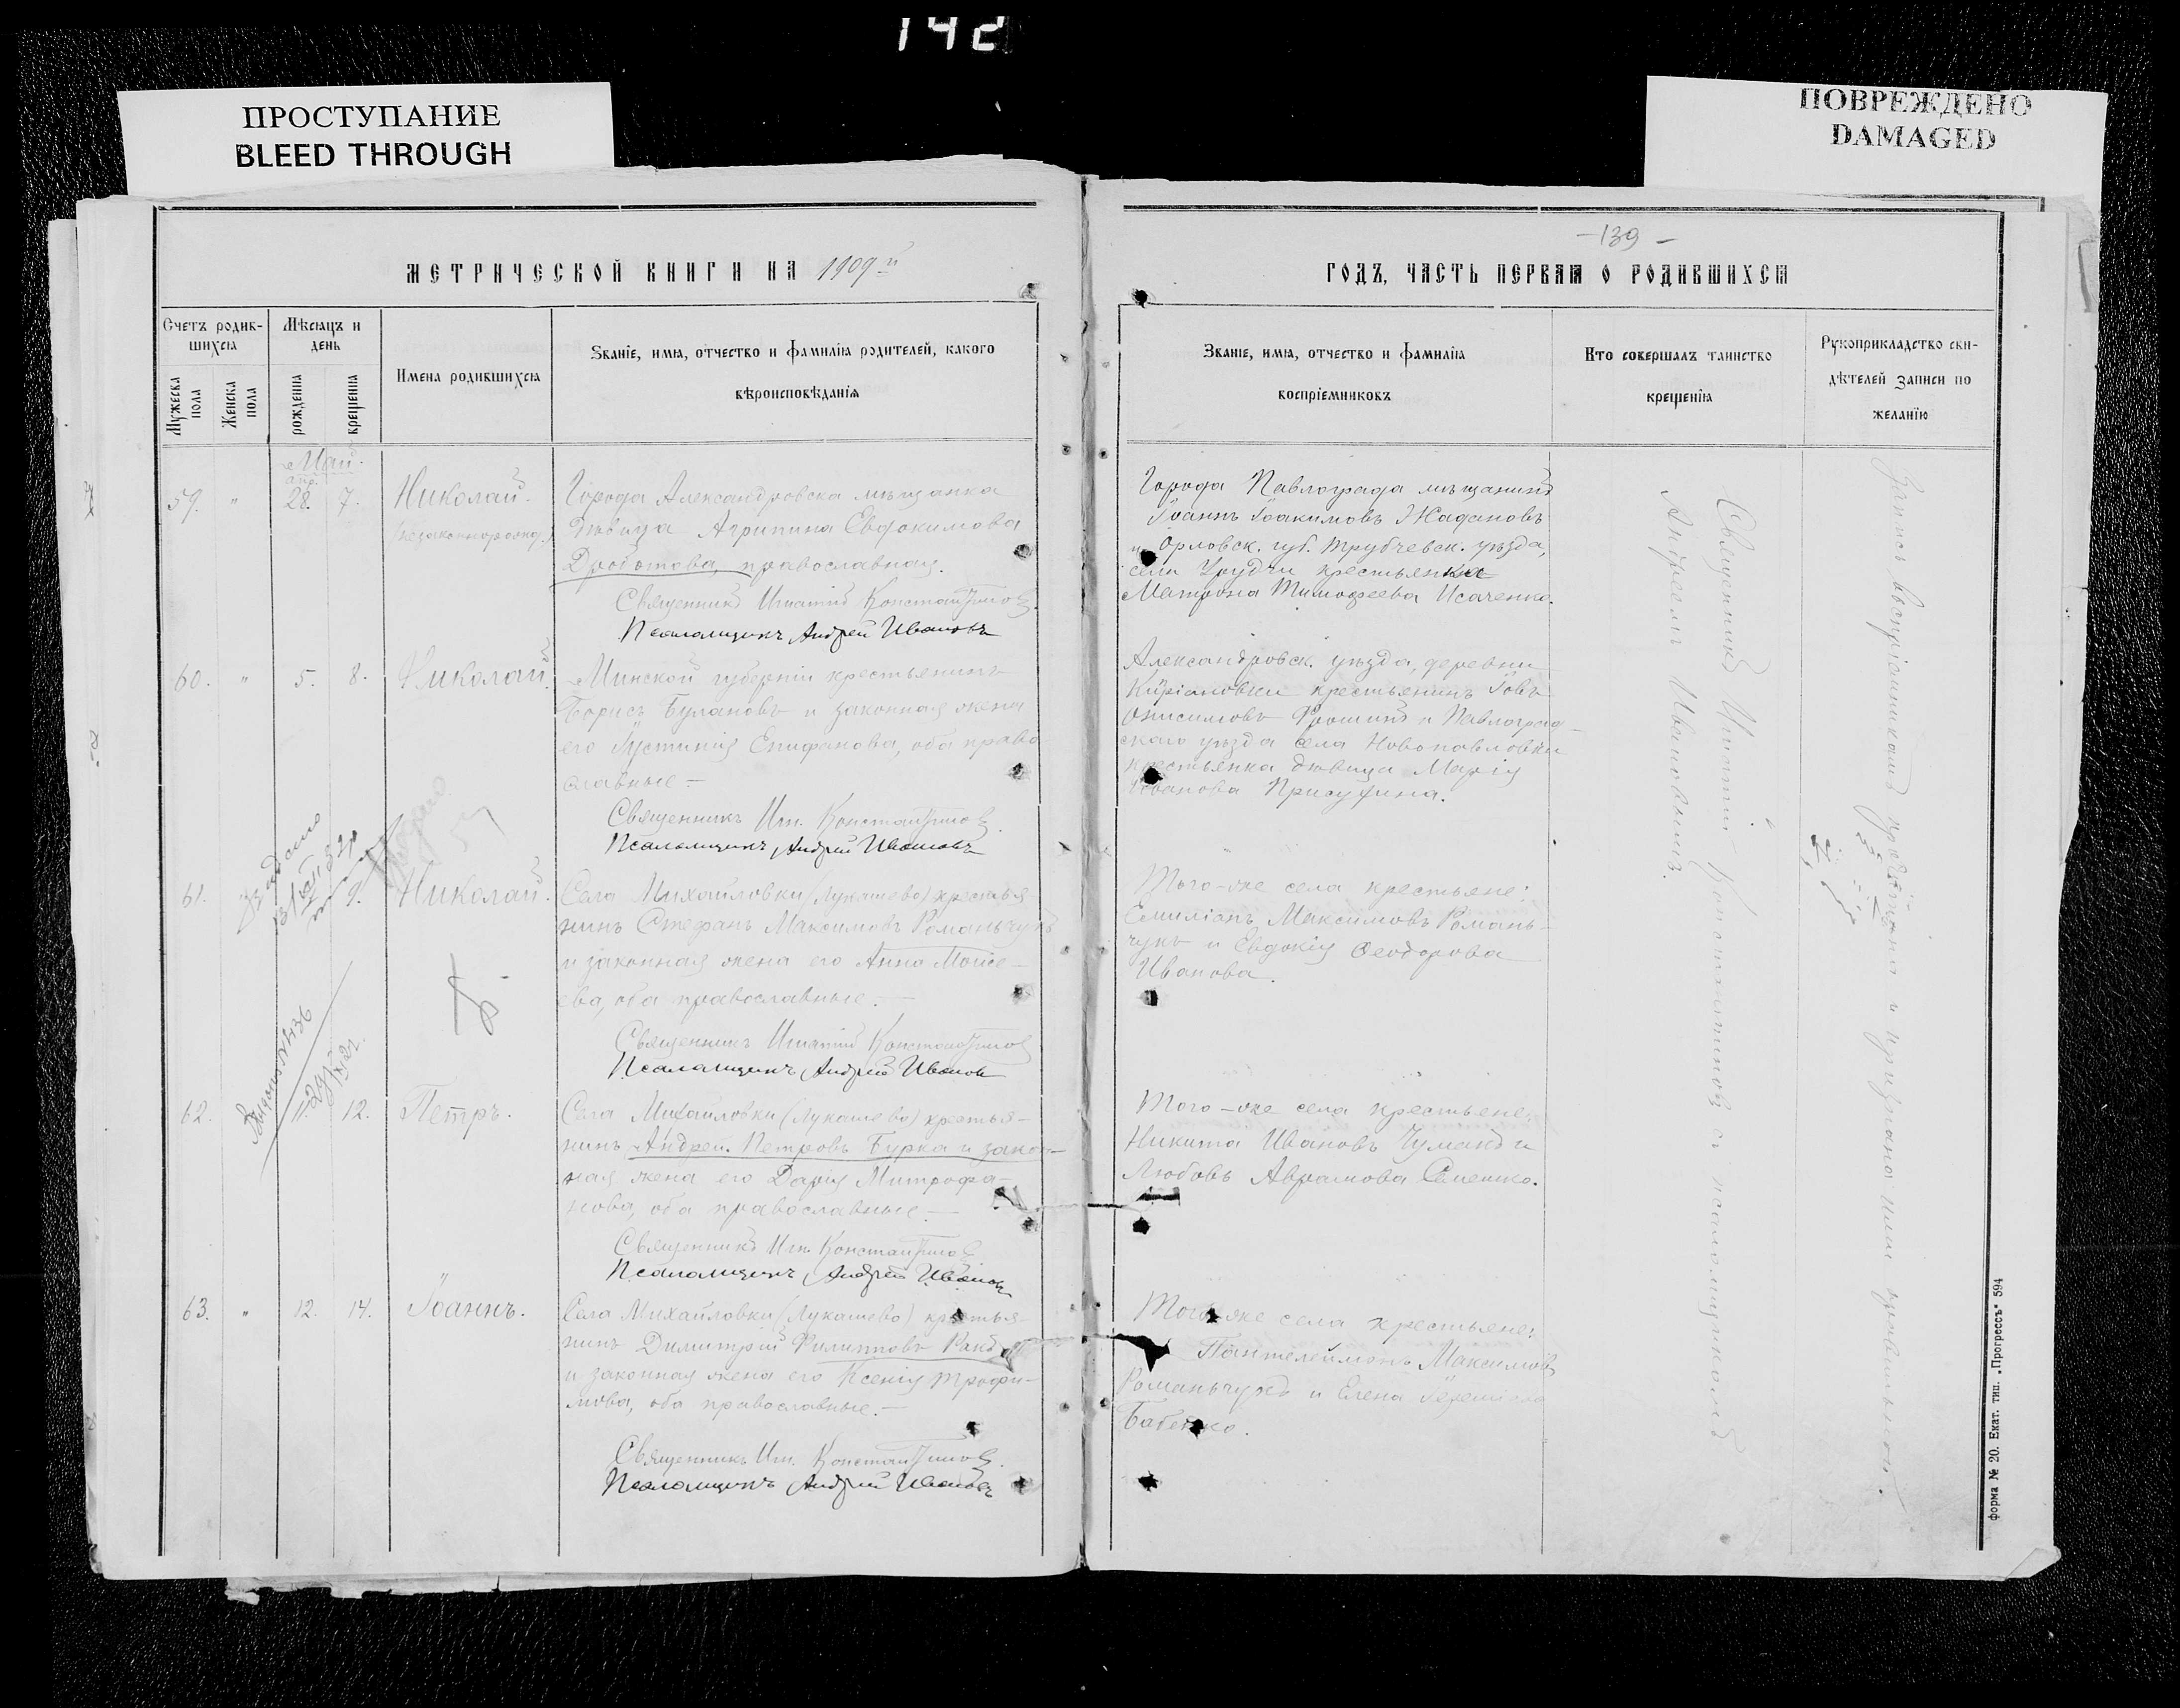 142
ПРОСТУПАНИЕ
BLEED THROUGH
ПОВРЕЖДЕНО
DAMAGED
МЕТРИЧЕСКОЙ КНИГИ НА 1909й
Счетъ родив-
шихся
Мѣсяцъ и
день
Мужеска
пола
Женска
пола
рожденія
крещенія
Имена родившихся
Званіе, имя, отчество и фамилія родителей, какого
вѣроисповѣданія
Май.
апр.
59. " 28. 7. Николай.
(незаконнорожд.)
Города Александровска мѣщанка
дѣвица Агрипина Евдокимова
Дроботова, православная.
Священникъ Игнатій Константиновъ.
Псаломщикъ Андрей Ивановъ
60. " 5. 8. Николай.
Минской губерніи крестьянинъ
Борисъ Булановъ и законная жена
его Іустинія Епифанова, оба право
славные –
Священникъ Игн. Константиновъ.
Псаломщикъ Андрей Ивановъ
61. 9. Николай.
Села Михайловки (Лукашево) крестья
нинъ Стефанъ Максимовъ Романьчукъ
и законная жена его Анна Моисе-
ева, оба православные. –
Священникъ Игнатій Константиновъ
Псаломщикъ Андрей Ивановъ
62. 11. 12. Петръ.
Села Михайловки (Лукашево) крестья-
нинъ Андрей Петровъ Бурка и закон-
ная жена его Дарія Митрофа-
нова, оба православные –
Священникъ Игн. Константиновъ
Псаломщикъ Андрей Ивановъ
63. " 12. 14. Іоаннъ.
Села Михайловки (Лукашево) крестья-
нинъ Димитрій Филипповъ
и законная жена его Ксенія Трофи-
мова, оба православные. –
Священникъ Игн. Константиновъ.
Псаломщикъ Андрей Ивановъ
– 139 –
ГОДЪ, ЧАСТЬ ПЕРВАЯ О РОДИВШИХСЯ
Званіе, имя, отчество и фамилія
воспріемниковъ
Кто совершалъ таинство
крещенія
Рукоприкладство сви-
дѣтелей записи по
желанію
Города Павлограда мѣщанинъ
Іоаннъ Іоакимовъ Жадановъ
и Орловск. губ. Трубчевск. уѣзда,
села крестьянка
Матрона Тимофеева Исаченко.
Александровск. уѣзда, деревни
Кирiановки крестьянинъ Іовъ
Онисимовъ и Павлоград-
скаго уѣзда села Новопавловки
крестьянка дѣвица Марія
Иванова
Того-же села крестьяне:
Емиліанъ Максимовъ Романь-
чукъ и Евдокія Ѳеодорова
Иванова.
Того-же села крестьяне:
Никита Ивановъ Чуманъ и
Любовь Аврамова
Того-же села крестьяне:
Пантелеймонъ Максимовъ
Романьчукъ и Елена
Бабенко.
Священникъ Игнатій Константиновъ съ псаломщикомъ
Андреемъ Ивановымъ.
Запись воспріемникамъ прочитана и признана ими правильною.
форма № 20. Екат. тип. „Прогрессъ" 594